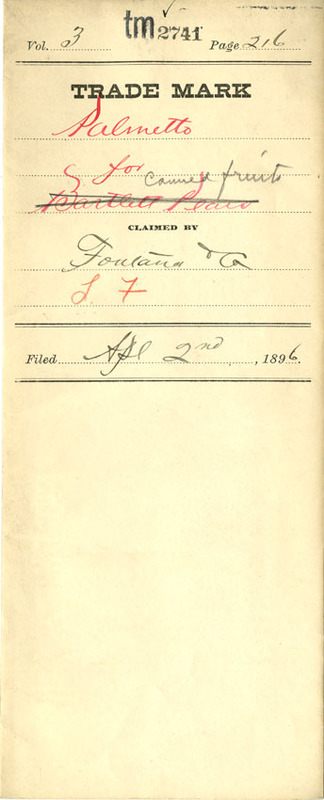 tm 2741
Vol. 3 Page 216
TRADE MARK
Palmetto
for canned fruits
Bartlett Pears
CLAIMED BY
Fontana & Co
S. F
Filed Apl 2nd, 1896.